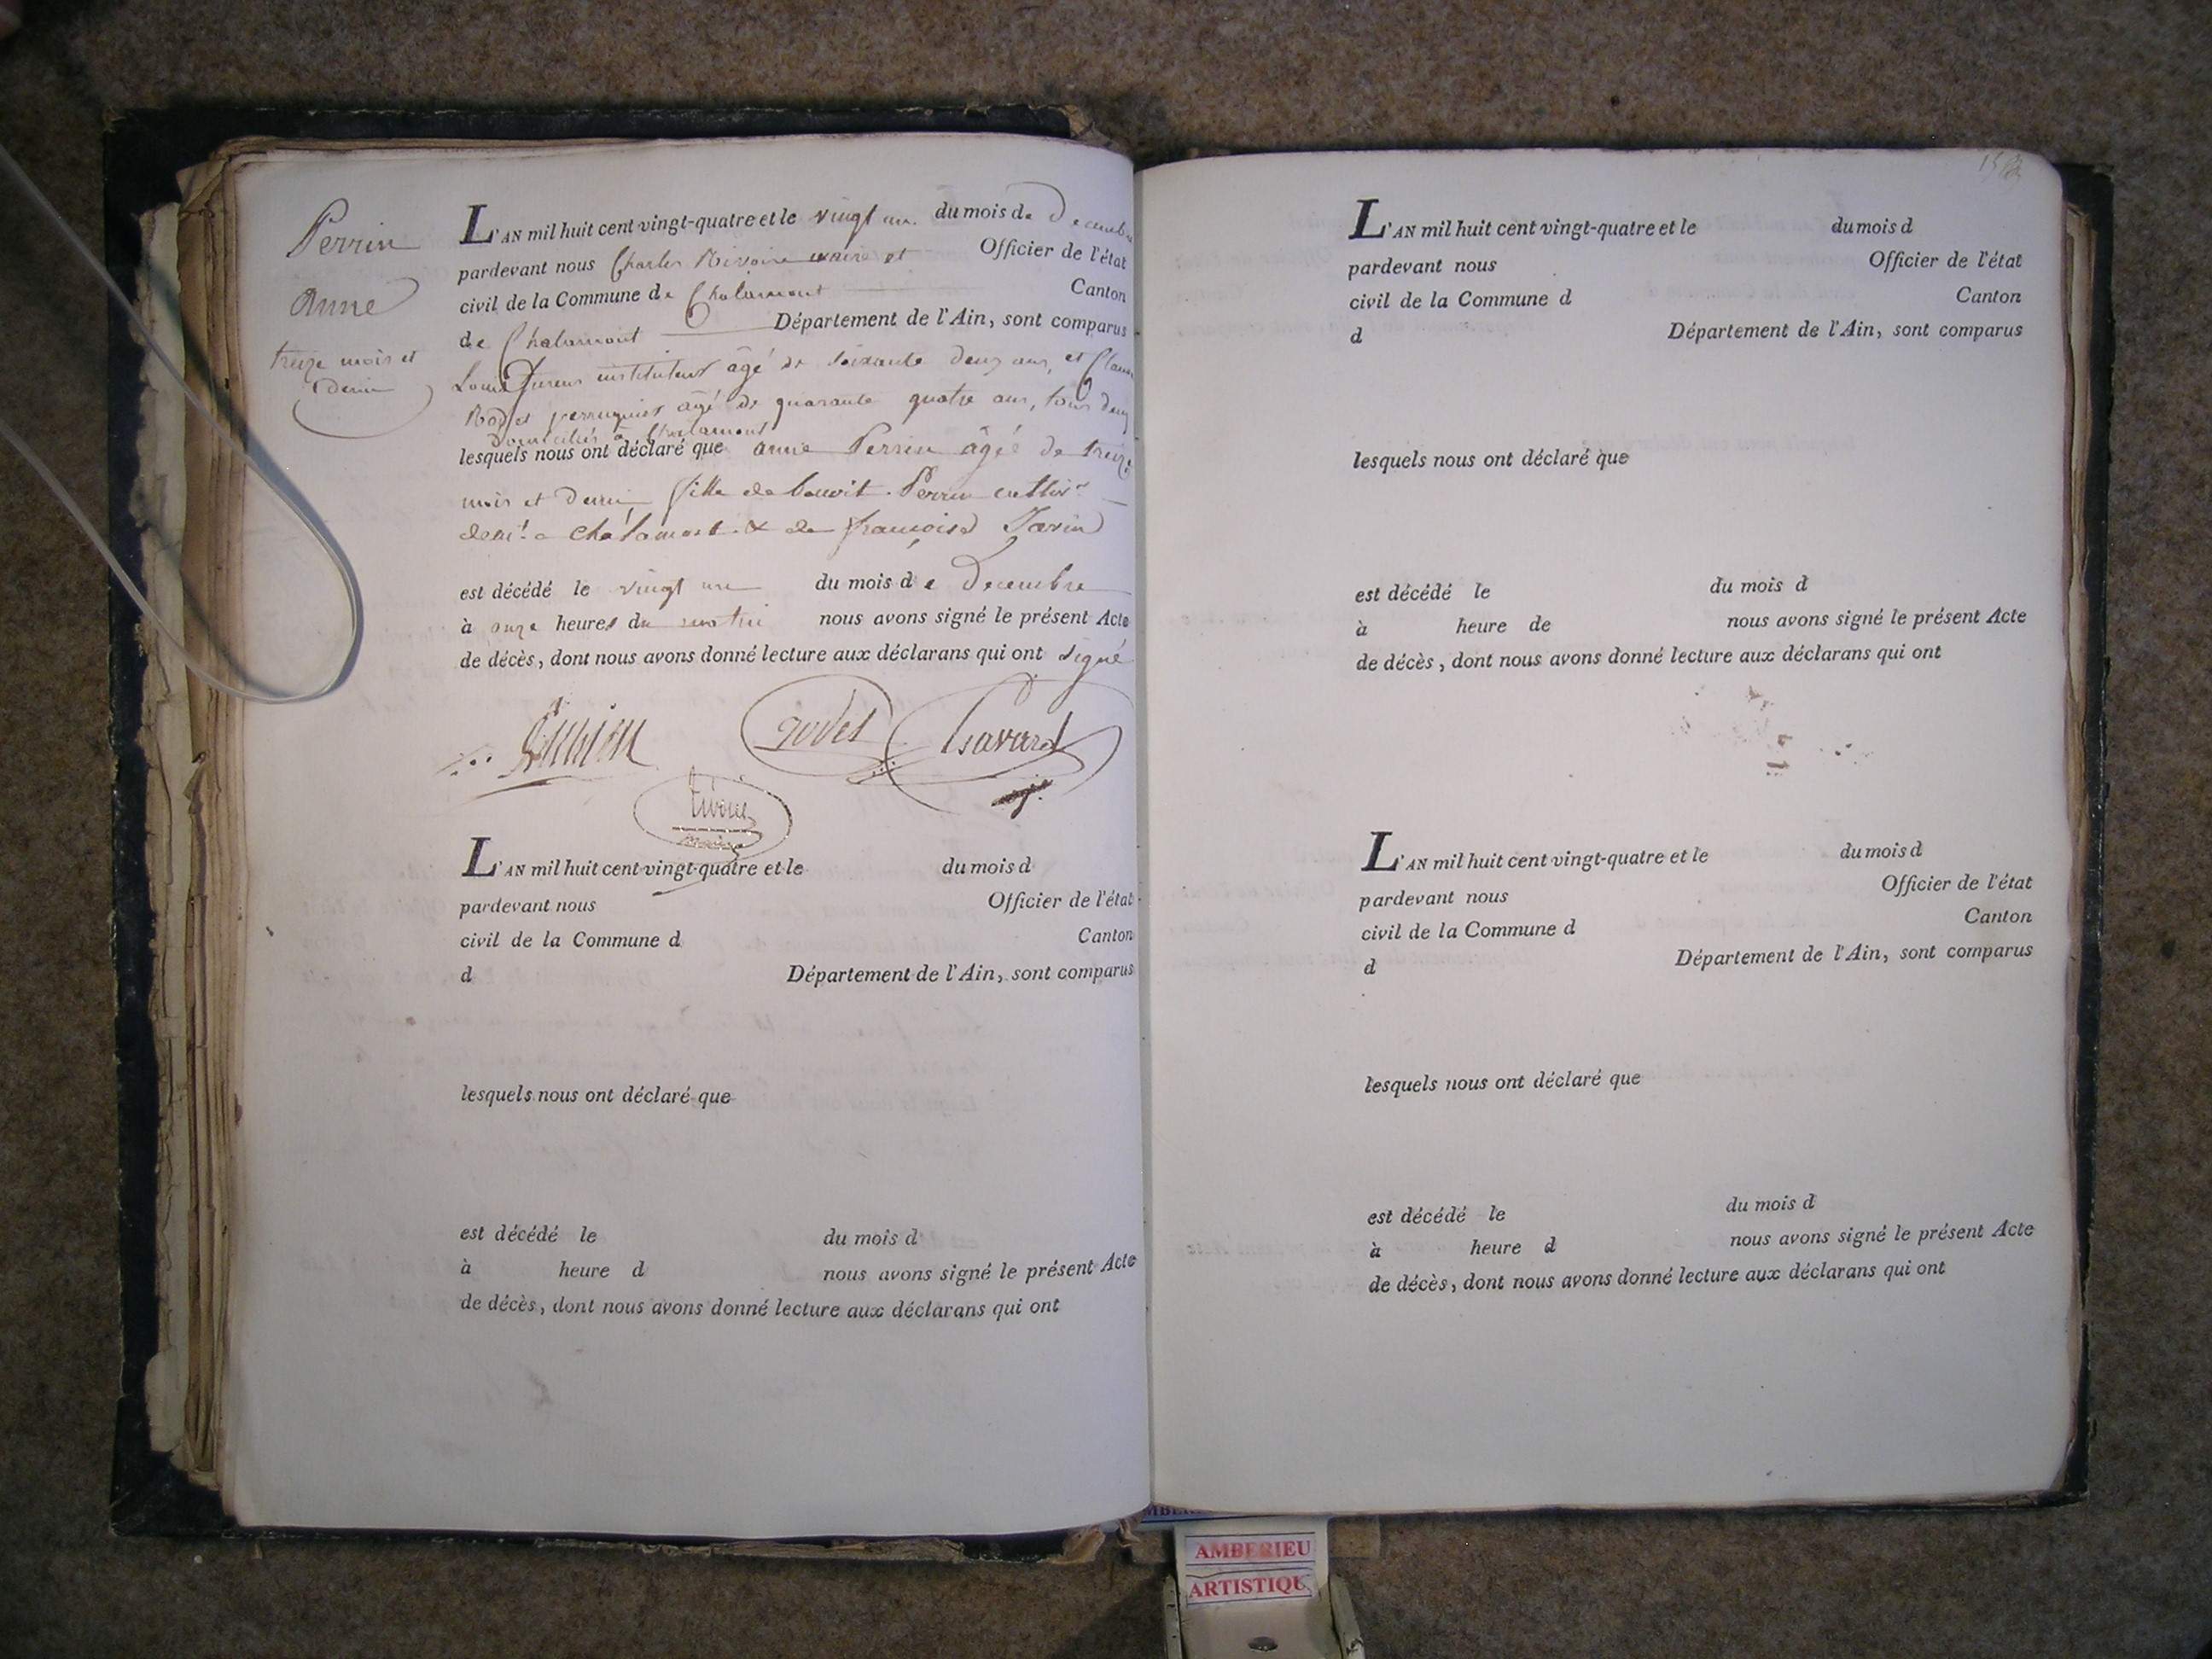 Perrin
Anne
treize mois et
demi
L'AN mil huit cent vingt-quatre et le vingt un du mois de Decembre
pardevant nous Charles Rivoire maire et Officier de l'état
civil de la Commune de Chalamont Canton
de Chalamont Département de l'Ain, sont comparus
Louis instituteur âgé de soixante deux ans, et
perruquier âgé de quarante quatre ans, tous deux
domiciliés à Chalamont
lesquels nous ont déclaré que anne Perrin âgée de treize
mois et demi, fille de benoit Perrin cultivr
demt a chalamont & de françoise
est décédé le vingt un du mois de Decembre
à onze heures du matin nous avons signé le présent Acte
de décès, dont nous avons donné lecture aux déclarans qui ont signé
godet Savard
L'AN mil huit cent vingt-quatre et le du mois d
pardevant nous Officier de l'état
civil de la Commune d Canton
d Département de l'Ain, sont comparus
lesquels nous ont déclaré que
est décédé le du mois d
à heure d nous avons signé le présent Acte
de décès, dont nous avons donné lecture aux déclarans qui ont
L'AN mil huit cent vingt-quatre et le du mois d
pardevant nous Officier de l'état
civil de la Commune d Canton
d Département de l'Ain, sont comparus
lesquels nous ont déclaré que
est décédé le du mois d
à heure de nous avons signé le présent Acte
de décès, dont nous avons donné lecture aux déclarans qui ont
L'AN mil huit cent vingt-quatre et le du mois d
pardevant nous Officier de l'état
civil de la Commune d Canton
d Département de l'Ain, sont comparus
lesquels nous ont déclaré que
est décédé le du mois d
à heure d nous avons signé le présent Acte
de décès, dont nous avons donné lecture aux déclarans qui ont
AMBERIEU
ARTISTIQU